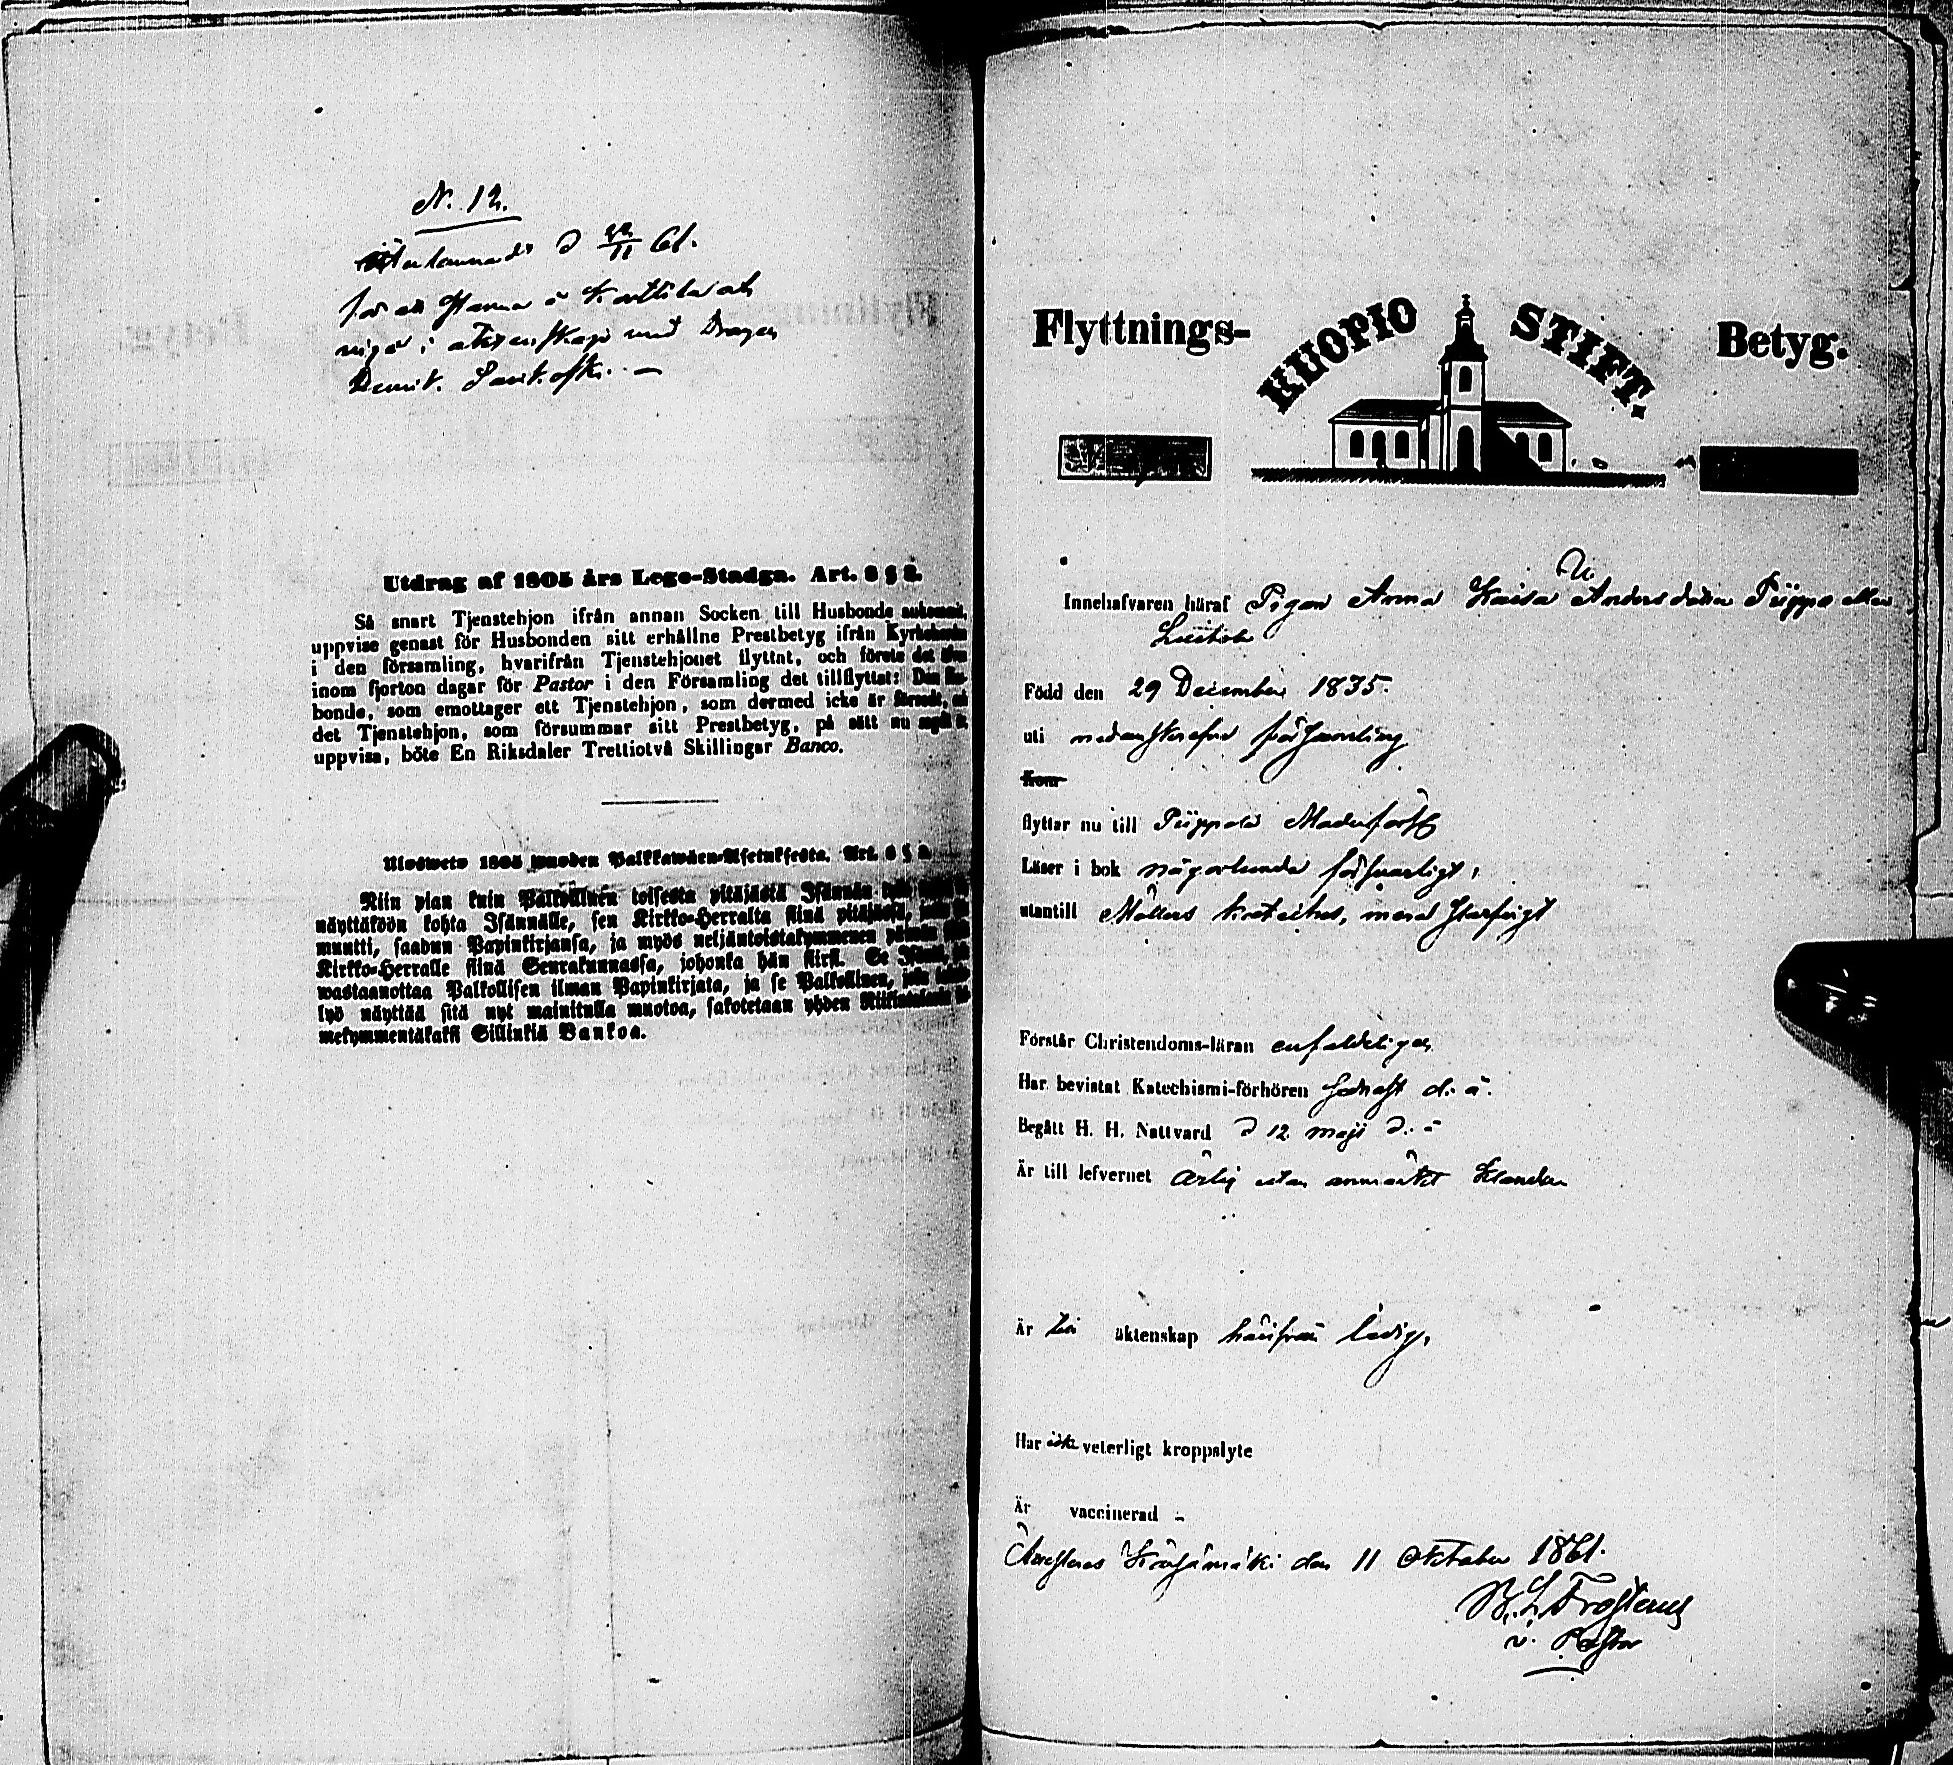 N. 12.
Återlemnades d 22/11 61.
för att stanna i
ingå i äktenskap med Dragon
Demit.
Utdrag af 1805 års Lego-Stadga. Art. 8 § 2.
Så snart Tjenstehjon ifrån annan Socken till Husbonde ankommit,
uppvise genast för Husbonden sitt erhållne Prestbetyg ifrån Kyrkoherden
i den församling, hvarifrån Tjenstehjonet flyttat, och förete det
inom fjorton dagar för Pastor i den Församling det tillflyttat: Den Hus-
bonde, som emottager ett Tjenstehjon, som dermed icke är försedt,
det Tjenstehjon, som försummar sitt Prestbetyg, på sätt nu sagdt är
uppvisa, böte En Riksdaler Trettiotvå Skillingar Banco.
Ulosweto 1805 wuoden Palkkawäen-Asetuksesta. Art. 8 § 2.
Niin pian kuin Palkollinen toisesta pitäjästä Isännän
näyttäköön kohta Isännälle, sen Kirkko-Herralta siinä pitäjässä,
muutti, saadun Papinkirjansa, ja myös neljäntoistakymmenen päiwän
Kirkko-Herralle siinä Seurakunnassa, johonka hän siirsi. Se Isäntä,
wastaanottaa Palkollisen ilman Papinkirjata, ja se Palkollinen,
lyö näyttää sitä nyt mainitulla muotoa, sakotetaan yhden Riikintalarin
mekymmentäkaksi Sillinkiä Bankoa.
Flyttnings- KUOPIO STIFT. Betyg.
Innehafvaren häraf Pigan Anna Kaisa Andersdotter Piippo eller
Född den 29 December 1835.
uti nedanskrefne församling
Kom
flyttar nu till Piippola Moderförs
Läser i bok någorlunda försvarligt,
utantill Möllers kateches, mera
Förstår Christendoms-läran enfaldeligen
Har bevistat Katechismi-förhören sednast d. å.
Begått H. H. Nattvard d 12 maji d. å
Är till lefvernet ärlig utan anmärkt klander
Är till äktenskap härifrån ledig,
Har icke veterligt kroppslyte
Är vaccinerad
Kärsämäki den 11 Oktober 1861.
Frosterus
v. Pastor